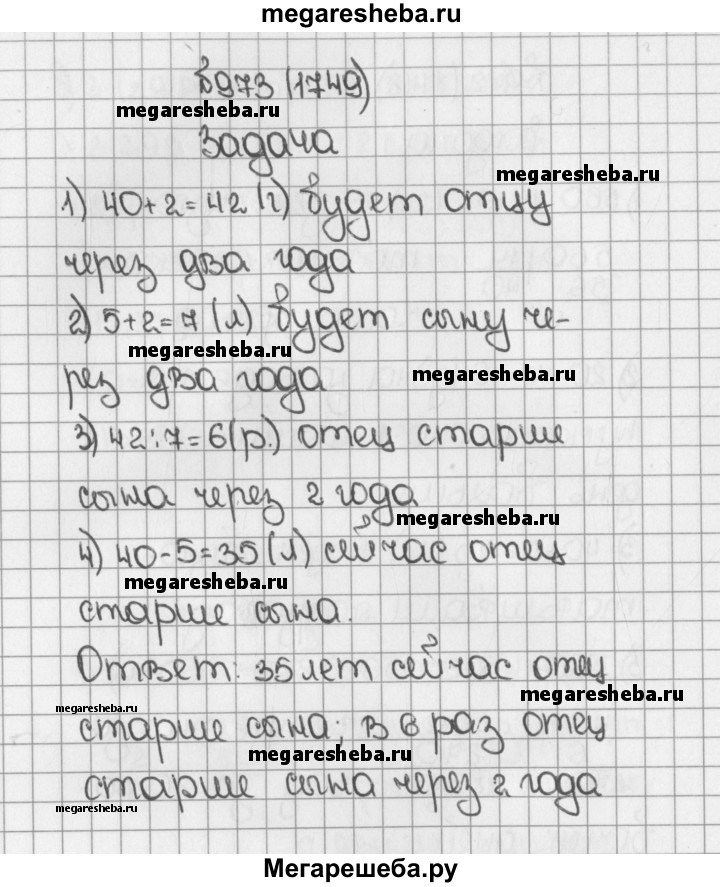 megaresheba.ru
№973 (1749)
megaresheba.ru
Задача
megaresheba.ru
1) 40+2=42 (г) будет отцу
через два года
2) 5+2=7 (л) будет сыну че-
megaresheba.ru
рез два года
megaresheba.ru
3) 42:7=6(р.) отец старше
сына через 2 года
megaresheba.ru
4) 40-5=35(л) сейчас отец
megaresheba.ru
старше сына.
Ответ: 35 лет сейчас отец
megaresheba.ru
megaresheba.ru
старше сына; в 6 раз отец
megaresheba.ru
старше сына через 2 года
megaresheba.ru
Мегарешеба.ру